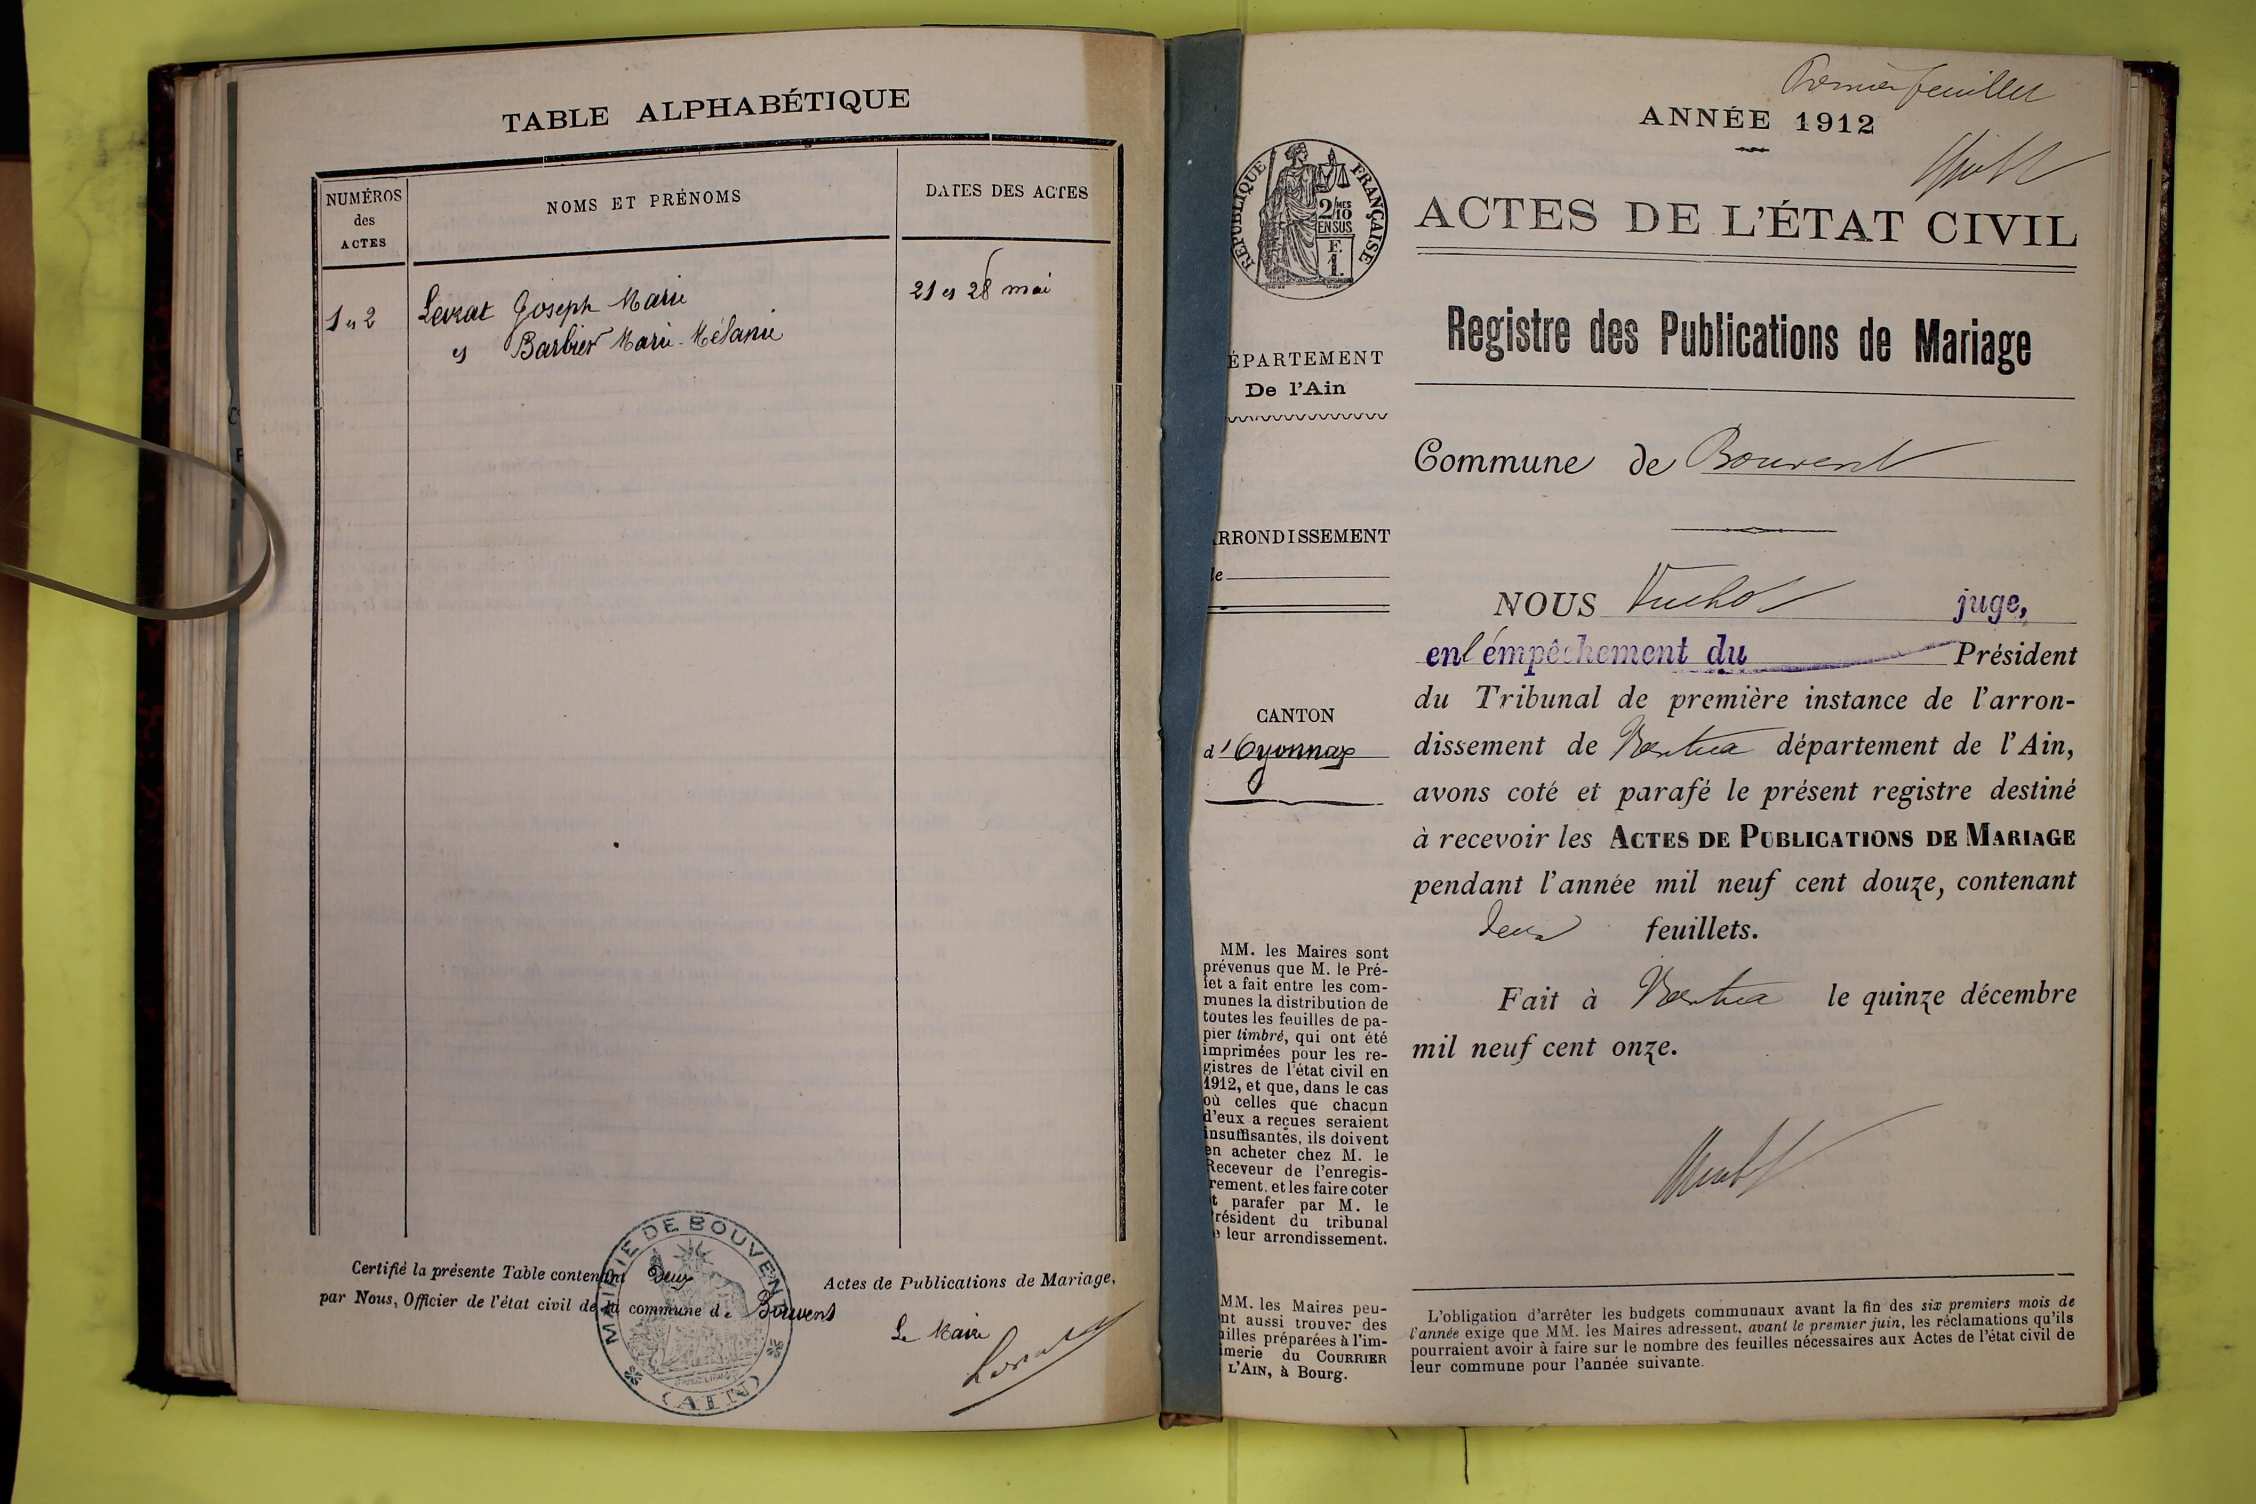 TABLE ALPHABÉTIQUE
NUMÉROS
des
ACTES
NOMS ET PRÉNOMS
DATES DES ACTES
1 et 2
Levrat Joseph Marie
et Barbier Marie-Mélanie
21 et 28 mai
Certifié la présente Table contenant deux Actes de Publications de Mariage,
par Nous, Officier de l'état civil de la commune de Bouvent
Le Maire
Levrat
MAIRIE DE BOUVENT
(AIN)
Premier feuillet
ANNÉE 1912
RÉPUBLIQUE FRANÇAISE
2/10 MES
EN SUS
F.
1.
ACTES DE L'ÉTAT CIVIL
Registre des Publications de Mariage
ÉPARTEMENT
De l'Ain
Commune de Bouvent
RRONDISSEMENT
de
CANTON
d'Oyonnax
NOUS juge,
en l'empêchement du Président
du Tribunal de première instance de l'arron-
dissement de Nantua département de l'Ain,
avons coté et parafé le présent registre destiné
à recevoir les ACTES DE PUBLICATIONS DE MARIAGE
pendant l'année mil neuf cent douze, contenant
deux feuillets.
Fait à Nantua le quinze décembre
mil neuf cent onze.
MM. les Maires sont
prévenus que M. le Pré-
fet a fait entre les com-
munes la distribution de
toutes les feuilles de pa-
pier timbré, qui ont été
imprimées pour les re-
gistres de l'état civil en
1912, et que, dans le cas
où celles que chacun
d'eux a reçues seraient
insuffisantes, ils doivent
en acheter chez M. le
Receveur de l'enregis-
trement, et les faire coter
et parafer par M. le
Président du tribunal
de leur arrondissement.
MM. les Maires peu-
nt aussi trouver des
uilles préparées à l'im-
imerie du COURRIER
L'AIN, à Bourg.
L'obligation d'arrêter les budgets communaux avant la fin des six premiers mois de
l'année exige que MM. les Maires adressent, avant le premier juin, les réclamations qu'ils
pourraient avoir à faire sur le nombre des feuilles nécessaires aux Actes de l'état civil de
leur commune pour l'année suivante.